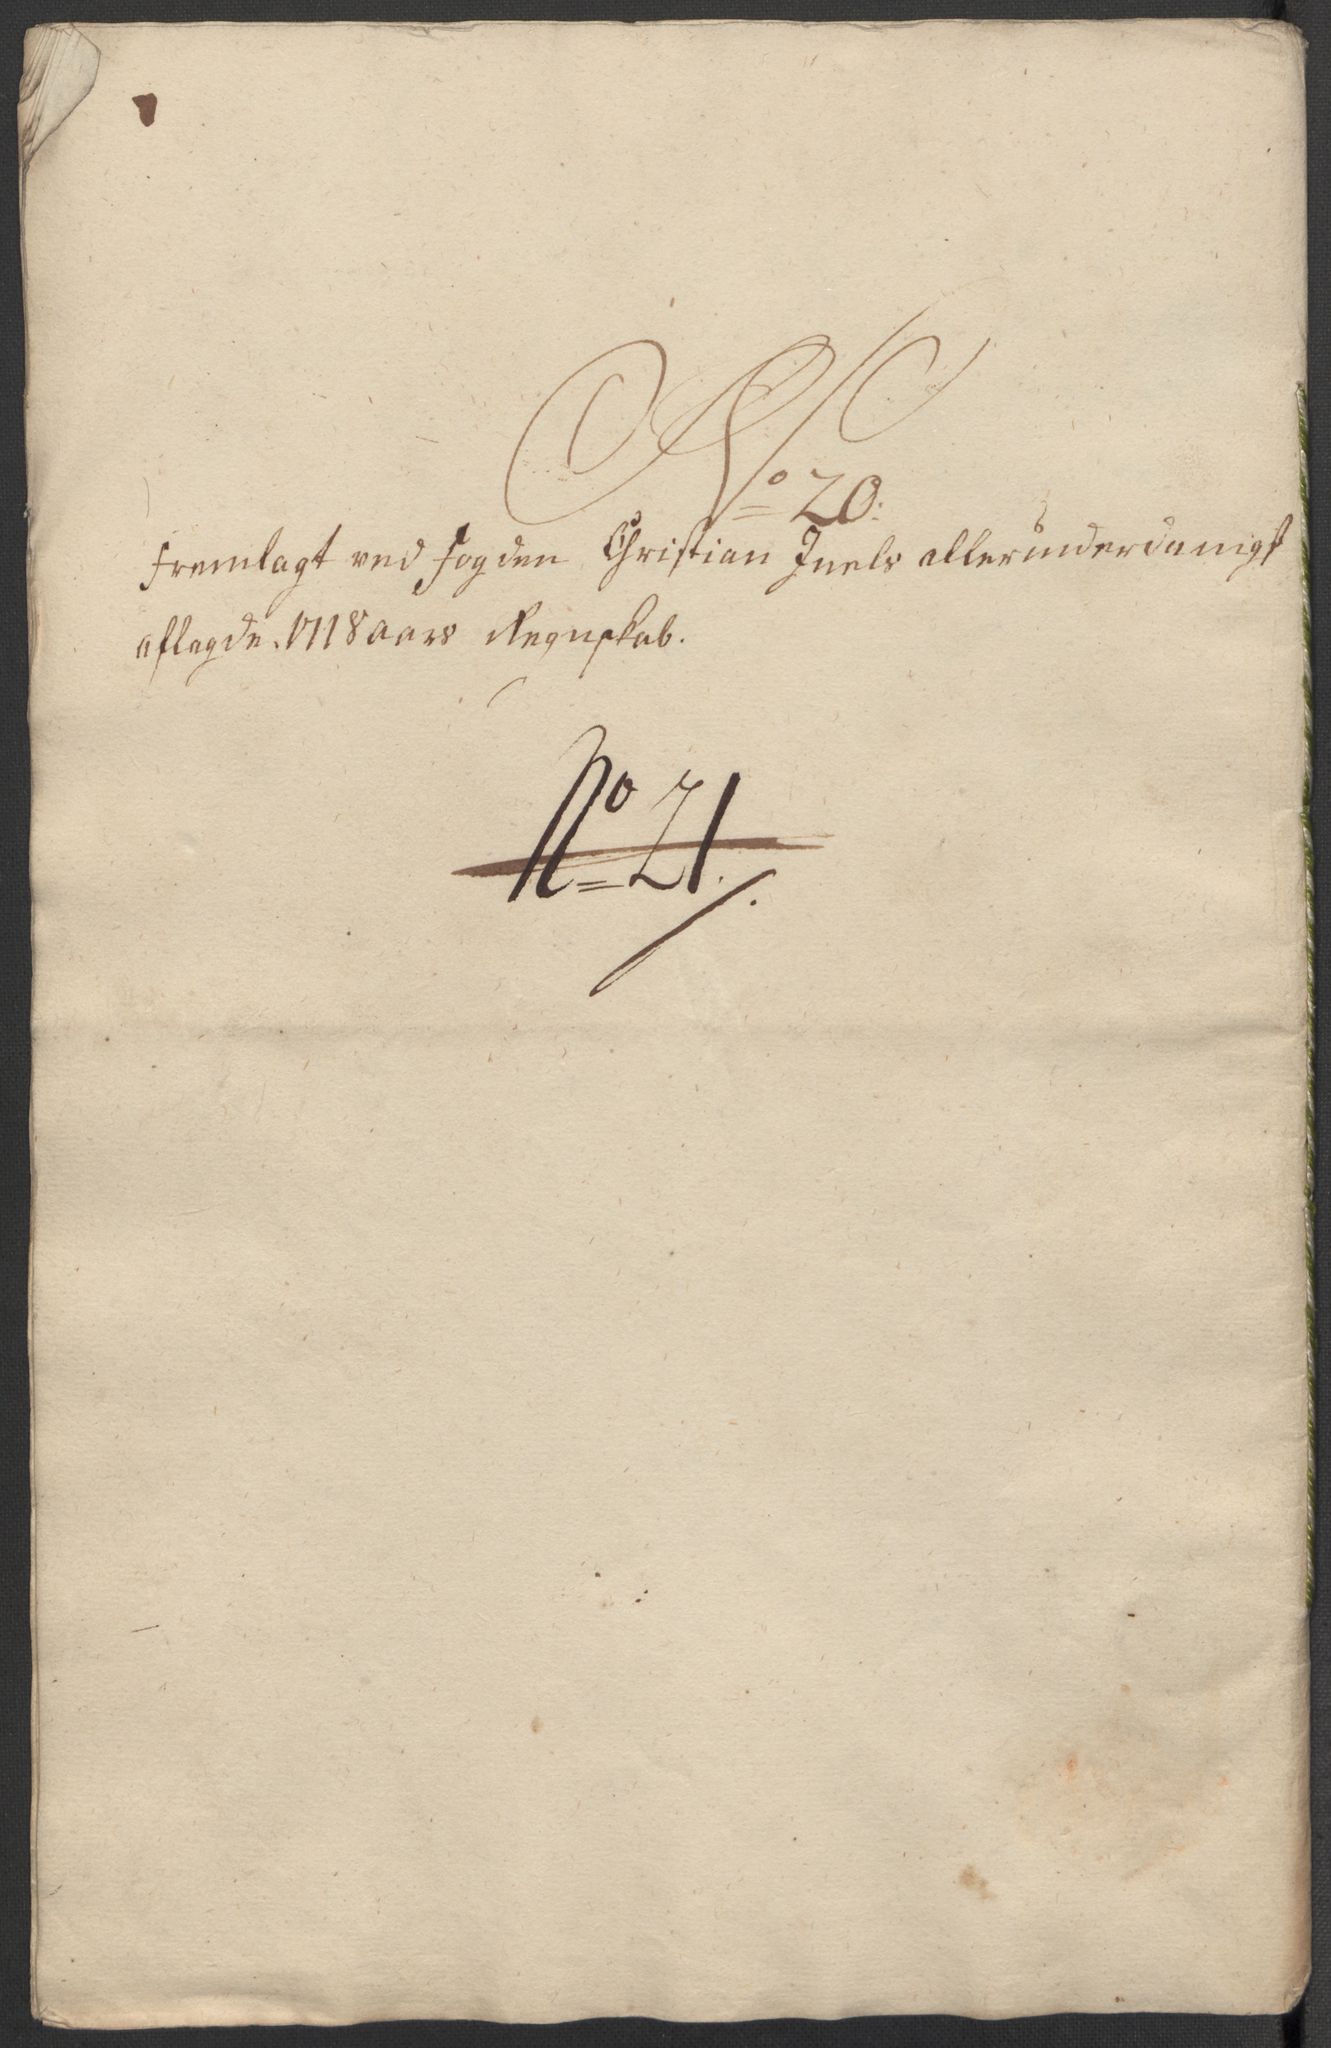 No 20:
Fremlagt ved Fogden Christian Juels allerunderdanigst
aflagde 1718 aars Regnskab.
No 21.